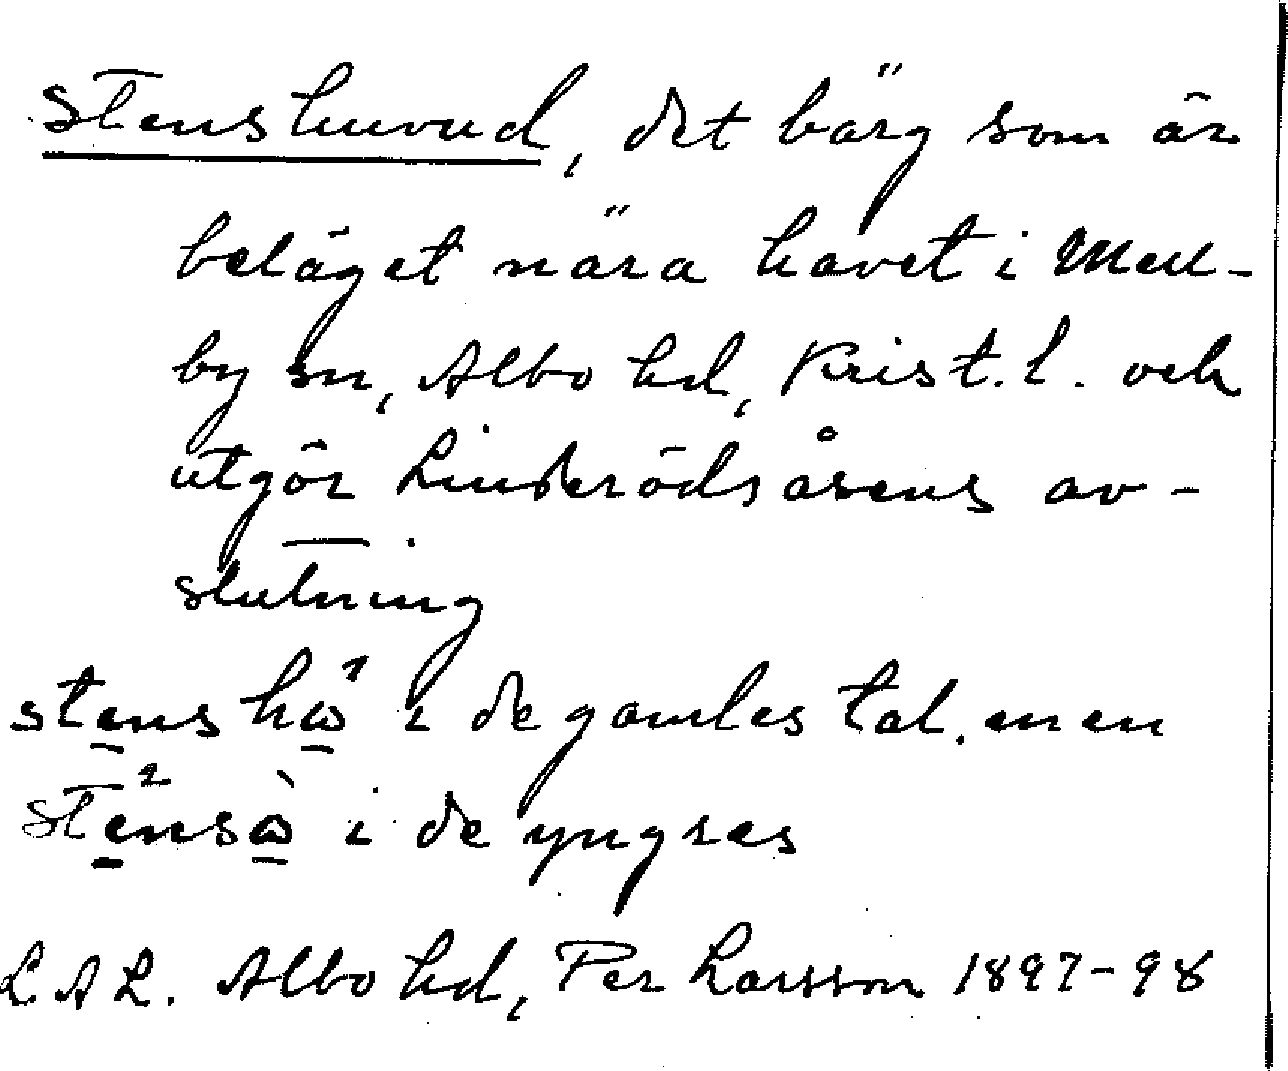 Stenshuvud, det bärg som är
beläget nära havet i Mell-
by sn, Albo hd, Krist. l. och
utgör Linderödsåsens av-
slutning
stens hω¹ i de gamles tal. men
ste²nsὼ i de yngres
LAL. Albo hd, Per Larsson 1897-98